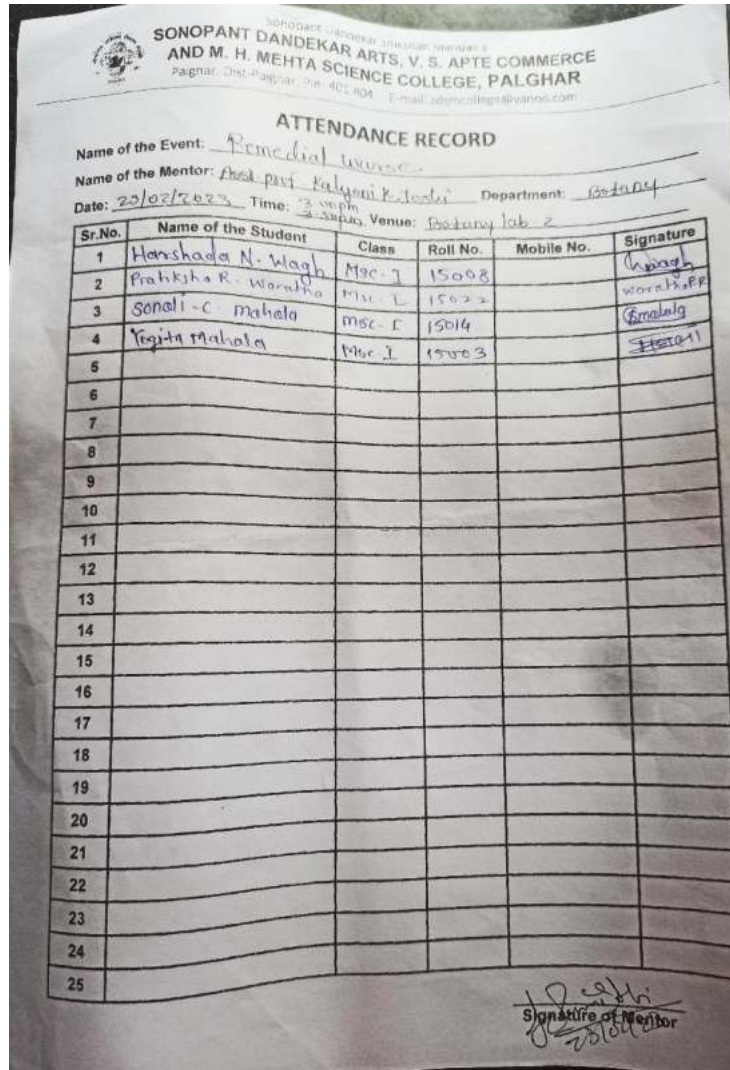 Sonopant Dandekar Shikshan Mandali's
SONOPANT DANDEKAR ARTS, V. S. APTE COMMERCE
AND M. H. MEHTA SCIENCE COLLEGE, PALGHAR
Palghar, Dist-Palghar, Pin- 401 404 E-mail:
ATTENDANCE RECORD
Name of the Event: Remedial course.
Name of the Mentor: Asst. prof Kalyani K. Joshi Department: Botany
Date: 23/02/2023 Time: 3.00pm Venue: Botany lab 2
Sr.No. Name of the Student Class Roll No. Mobile No. Signature
1 Harshada N. Wagh Msc-I 15008 Wagh
2 Pratiksha R. Woratha Msc-I 15022 Woratha PR
3 Sonali -C- mahala msc-I 15014 Smahala
4 Yogita Mahala Msc-I 15003
5
6
7
8
9
10
11
12
13
14
15
16
17
18
19
20
21
22
23
24
25
Signature of Mentor